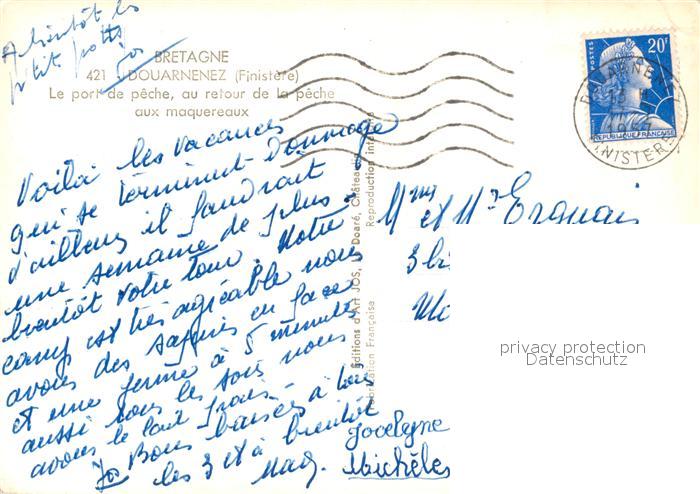 A bientôt les
p'tits potts
Jos
BRETAGNE
421 DOUARNENEZ (Finistère)
Le port de pêche, au retour de la pêche
aux maquereaux
Voilà les vacances
qui se terminent. Dommage
d'ailleurs il faudrait
une semaine de plus.
bientôt votre tour. Notre
camp est très agréable nous
avons des sapins en face
et une ferme à 5 minutes
aussi tous les soirs nous
avons le lait frais.
Bons baisers à tous
les 3 et à bientôt
Jos
Mag.
Jocelyne
Michèle
Editions d'Art JOS, Doaré, Châteaulin
Reproduction interdite
Fabrication Française
POSTES
20F
REPUBLIQUE FRANÇAISE
DOUARNENEZ
FINISTERE
Mme et Mr
3 bi
privacy protection
Datenschutz